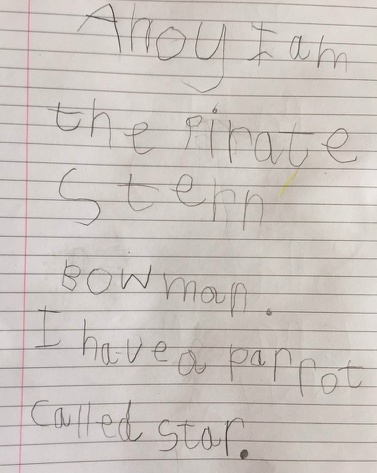 Ahoy I am
the pirate
Stern
Bowman.
I have a parrot
called star.